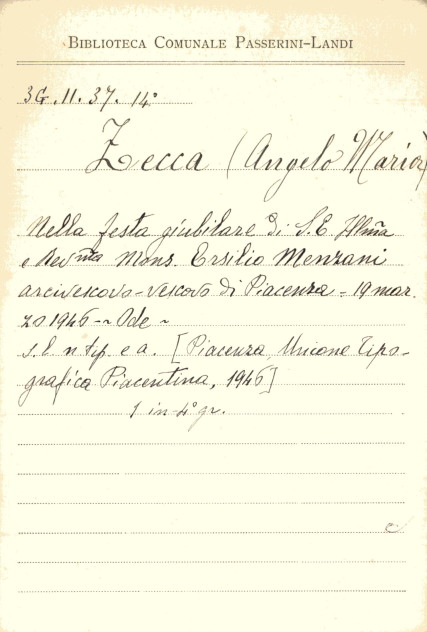 BIBLIOTECA COMUNALE PASSERINI-LANDI
3G.11.37.14°
Zecca (Angelo Maria)
Nella festa giubilare di S.E. Illma
e Revma Mons. Ersilio Menzani
arcivescovo-vescovo di Piacenza - 19 mar.
zo 1946 - Ode -
s. l. n. tip. e a. [Piacenza, Unione Tipo-
grafica Piacentina, 1946]
1 in-4° gr.